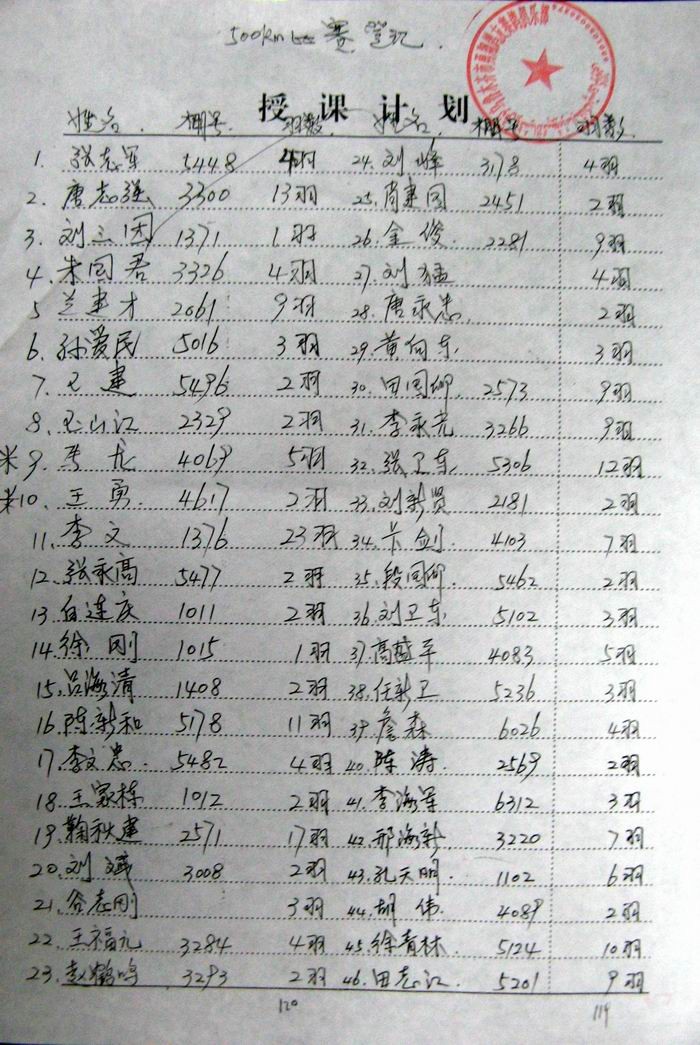 500km比赛登记.
授课计划
姓名. 棚号. 羽数. 姓名. 棚号 羽数.
1. 张志军 5448 4羽 24.刘峰 3178 4羽
2. 唐志强 3300 13羽 25.肖建国 2451 2羽
3. 刘三因 1371 1羽 26.金俊. 2281 9羽
4. 朱国君 3326 4羽 27.刘猛 4羽
5 兰建才 2061 9羽 28.唐永忠. 2羽
6. 孙爱民 5016 3羽 29.黄向东 3羽
7. 王建 5496 2羽 30.田国仰. 2573 9羽
8. 王山江 2329 2羽 31.李永光 3266 9羽
9. 龙 4069 5羽 32.张卫东 5306 12羽
10. 王勇. 4617 2羽 33.刘新贤 2181 2羽
11. 李文 1376 23羽 34.卞剑. 4103 7羽
12. 张永高 5477 2羽 35.段国仰. 5462 2羽
13 白连庆 1011 2羽 36.刘卫东 5102 3羽
14.徐刚 1015 1羽 37.高越军 4083 5羽
15.吕海清 1408 2羽 38.任新卫 5236 3羽
16.陈新和 5178 11羽 39.詹森 6026 4羽
17.李文忠. 5482 4羽 40.陈涛. 2569 2羽
18.王家栋 1012 2羽 41.李海军 6312 3羽
19.鞠秋建 2571 17羽 42.邢海新 3220 7羽
20.刘斌 3008 2羽 43.孔天明. 1102 6羽
21.谷志刚 3羽 44.胡伟. 4089 2羽
22.王福元 3284 4羽 45.徐青林. 5124 10羽
23.赵鹤鸣 3293 2羽 46.田志江. 5201 9羽
120 119